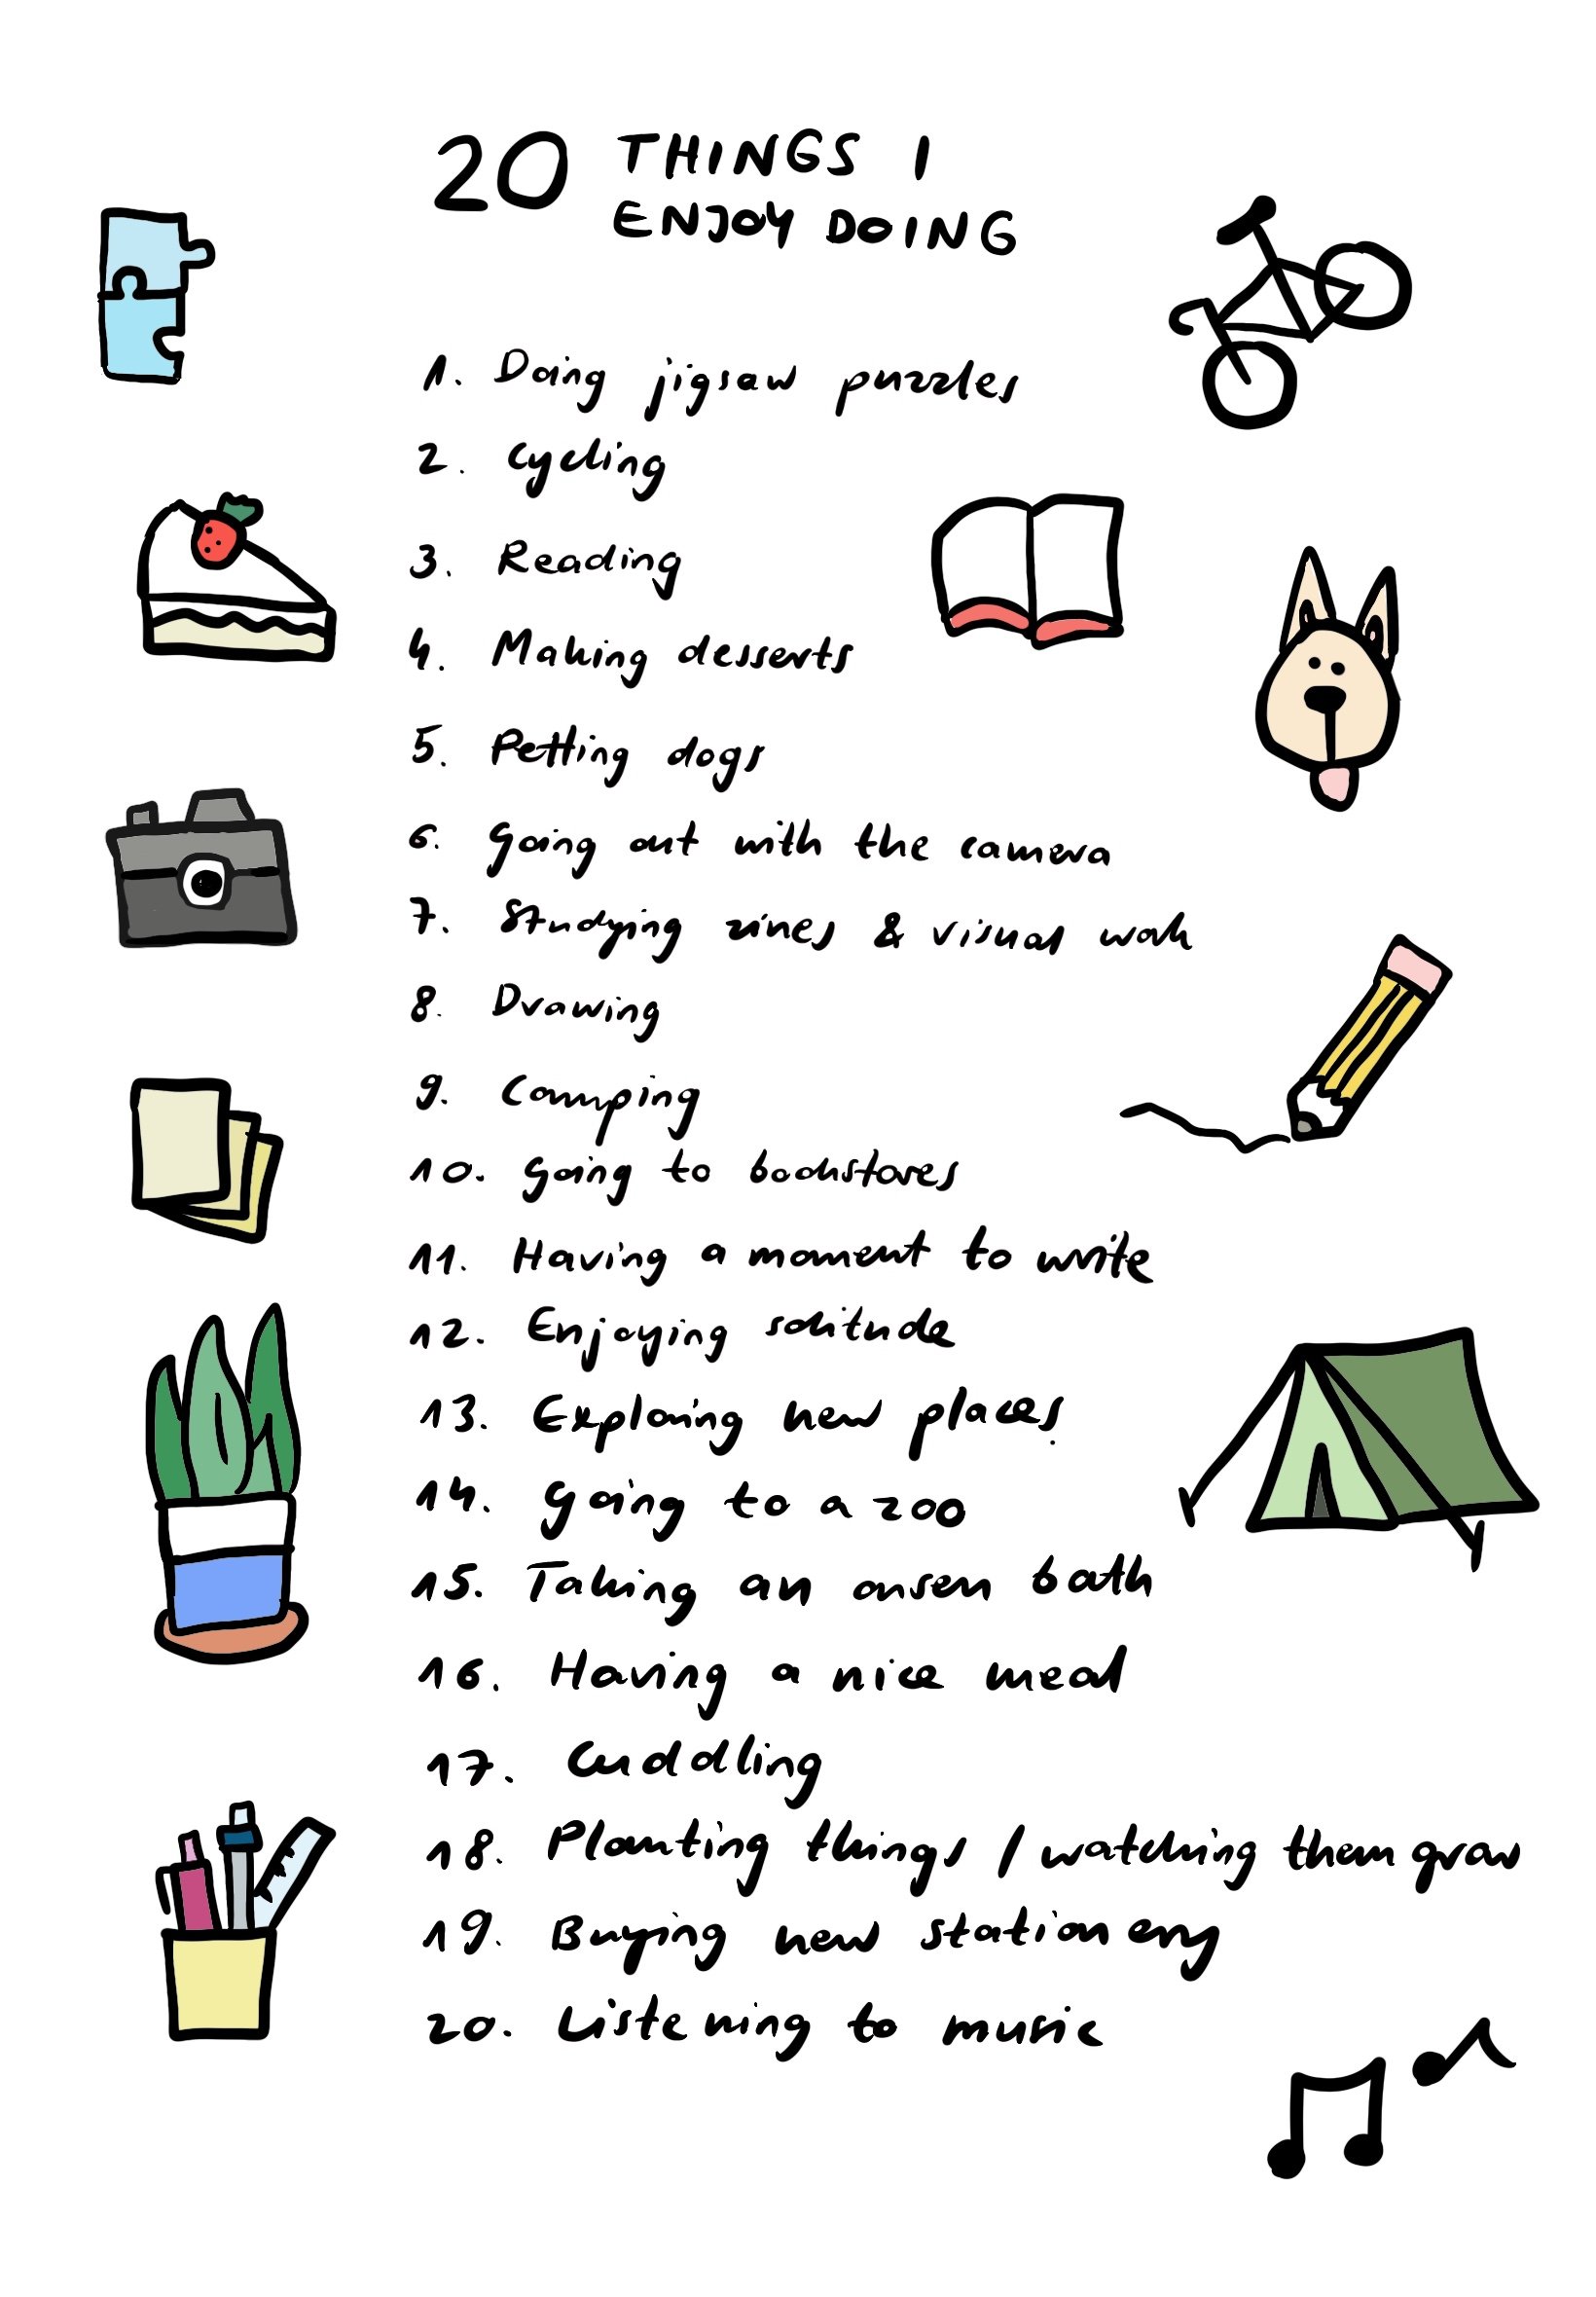 20 THINGS I
ENJOY DOING
1. Doing jigsaw puzzles
2. Cycling
3. Reading
4. Making desserts
5. Petting dogs
6. Going out with the camera
7. Studying zines & visual work
8. Drawing
9. Camping
10. Going to bookstores
11. Having a moment to write
12. Enjoying solitude
13. Exploring new places
14. Going to a zoo
15. Taking an onsen bath
16. Having a nice meal
17. Cuddling
18. Planting things / watching them grow
19. Buying new stationery
20. Listening to music